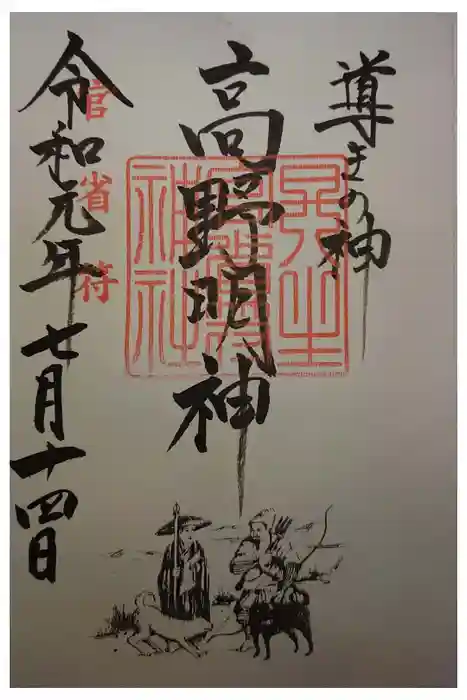 導きの神
高野明神
丹生
官省符
神社
官省符
令和元年七月十四日